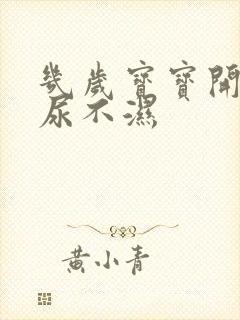 幾歲寶寶開
尿不濕
黃小青